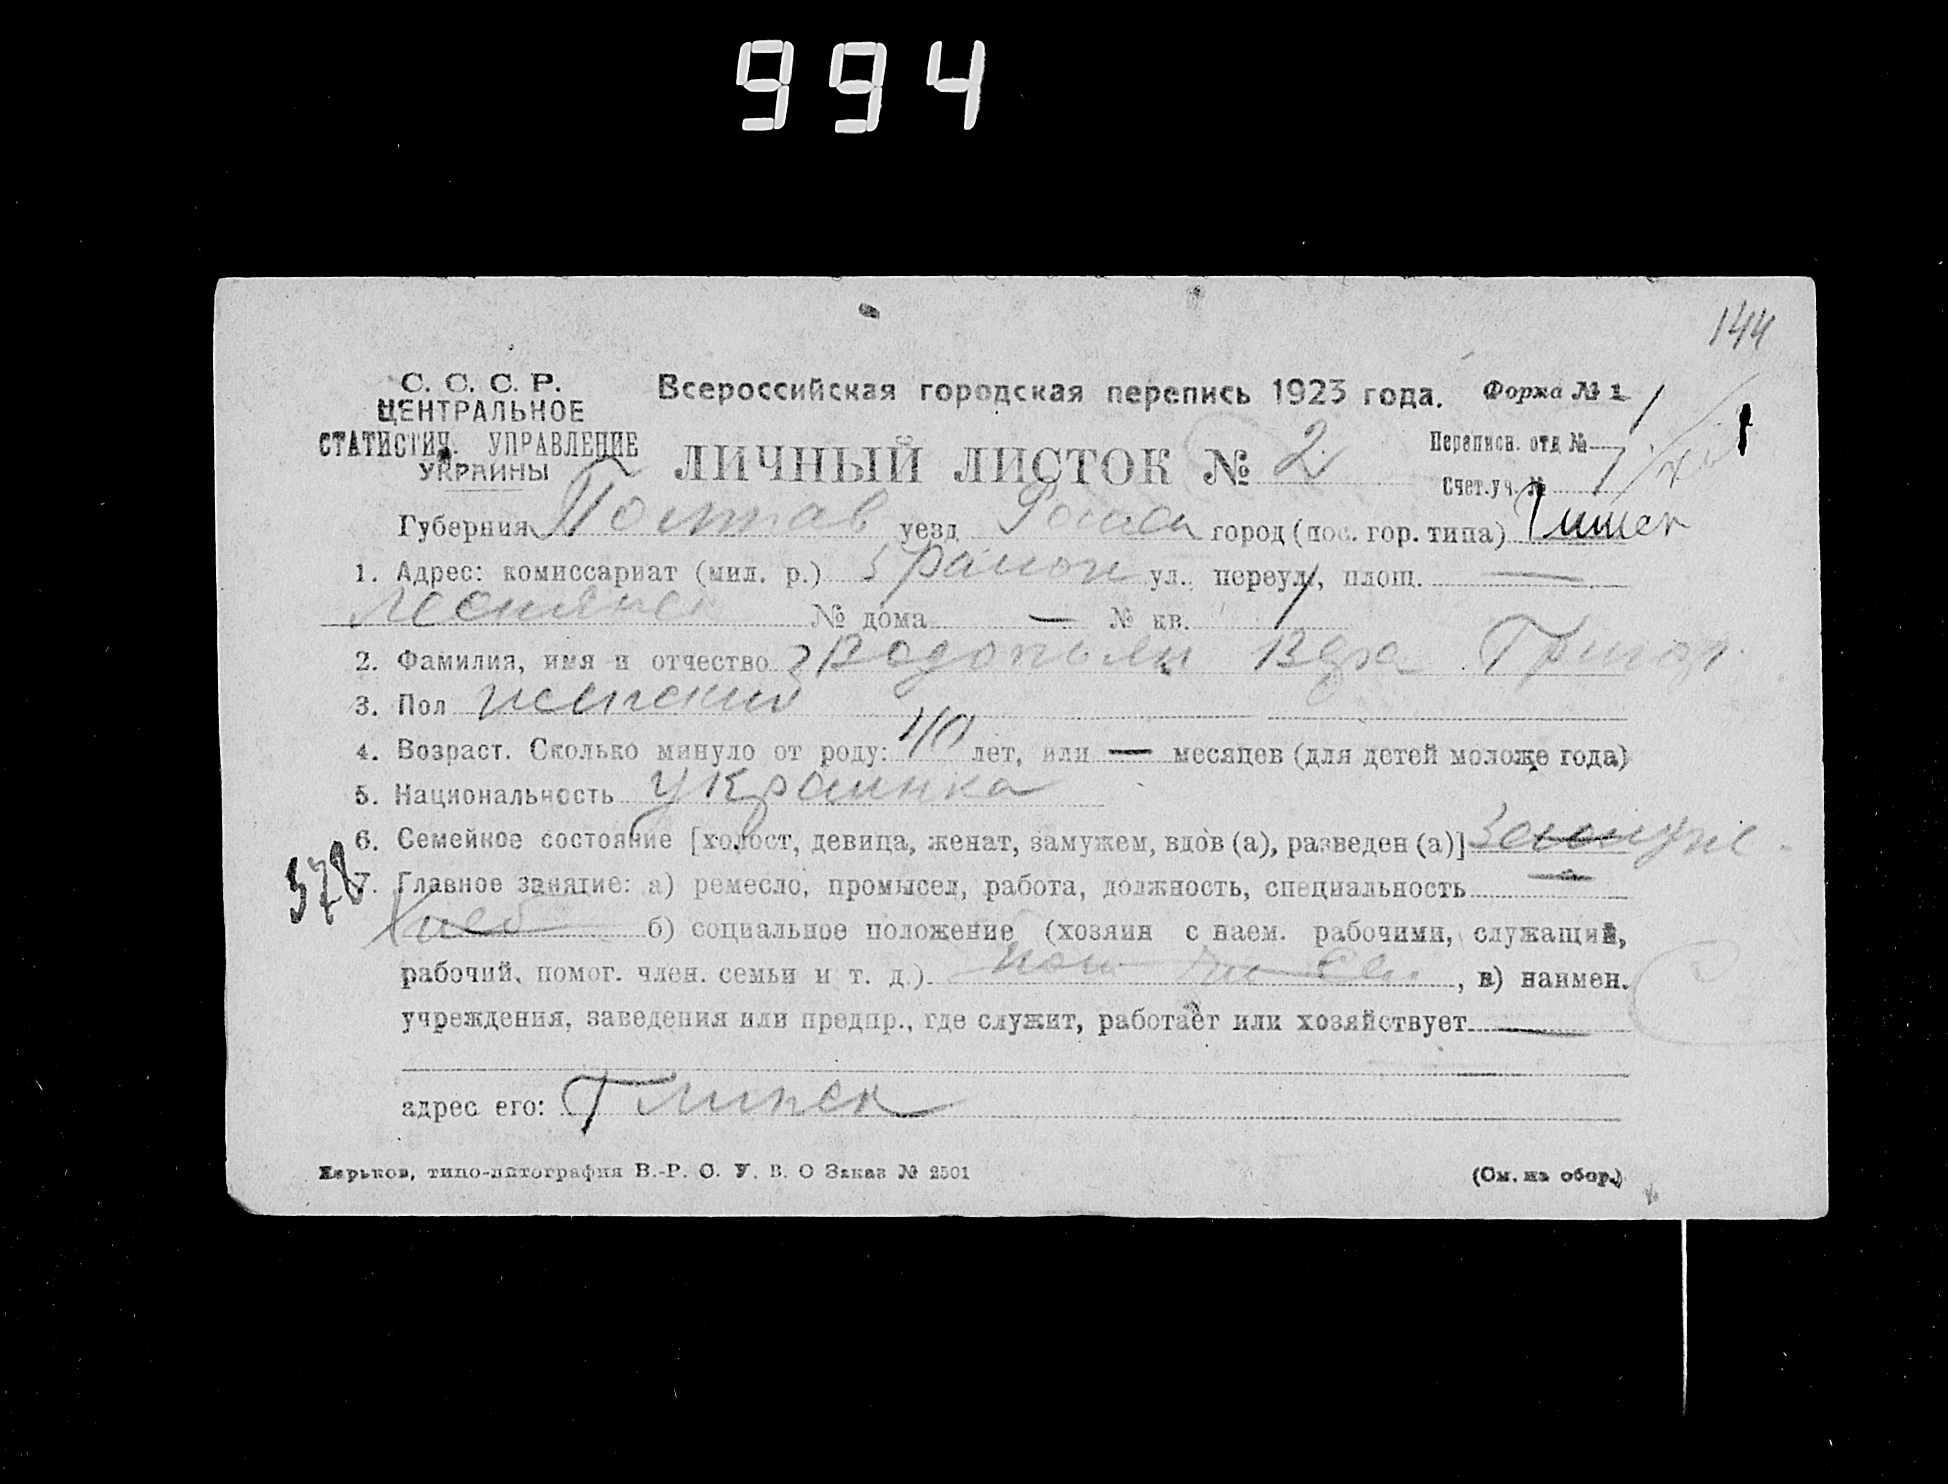 994
144
С. С. С. Р.
ЦЕНТРАЛЬНОЕ
СТАТИСТИЧ. УПРАВЛЕНИЕ
УКРАИНЫ
Всероссийская городская перепись 1923 года. Форма № 1
ЛИЧНЫЙ ЛИСТОК № 2
Переписн. отд. № 1
Счет.уч. № 1
Губерния Полтав уезд город (пос. гор. типа) Глинск
1. Адрес: комиссариат (мил. р.) 5 район ул., переул., площ. —
№ дома — № кв. 1
2. Фамилия, имя и отчество Водопьян Вера Григор.
3. Пол женский
4. Возраст. Сколько минуло от роду: 40 лет, или — месяцев (для детей моложе года)
5. Национальность украинка
6. Семейное состояние [холост, девица, женат, замужем, вдов (а), разведен (а)] Замуже.
378
7. Главное занятие: а) ремесло, промысел, работа, должность, специальность
Хлеб б) социальное положение (хозяин с наем. рабочими, служащий,
рабочий, помог. член. семьи и т. д.) пом чл сем, в) наимен.
учреждения, заведения или предпр., где служит, работает или хозяйствует —
адрес его: Глинск
Харьков, типо-литография В.-Р. С. У. В. О Заказ № 2501
(См. на обор.)